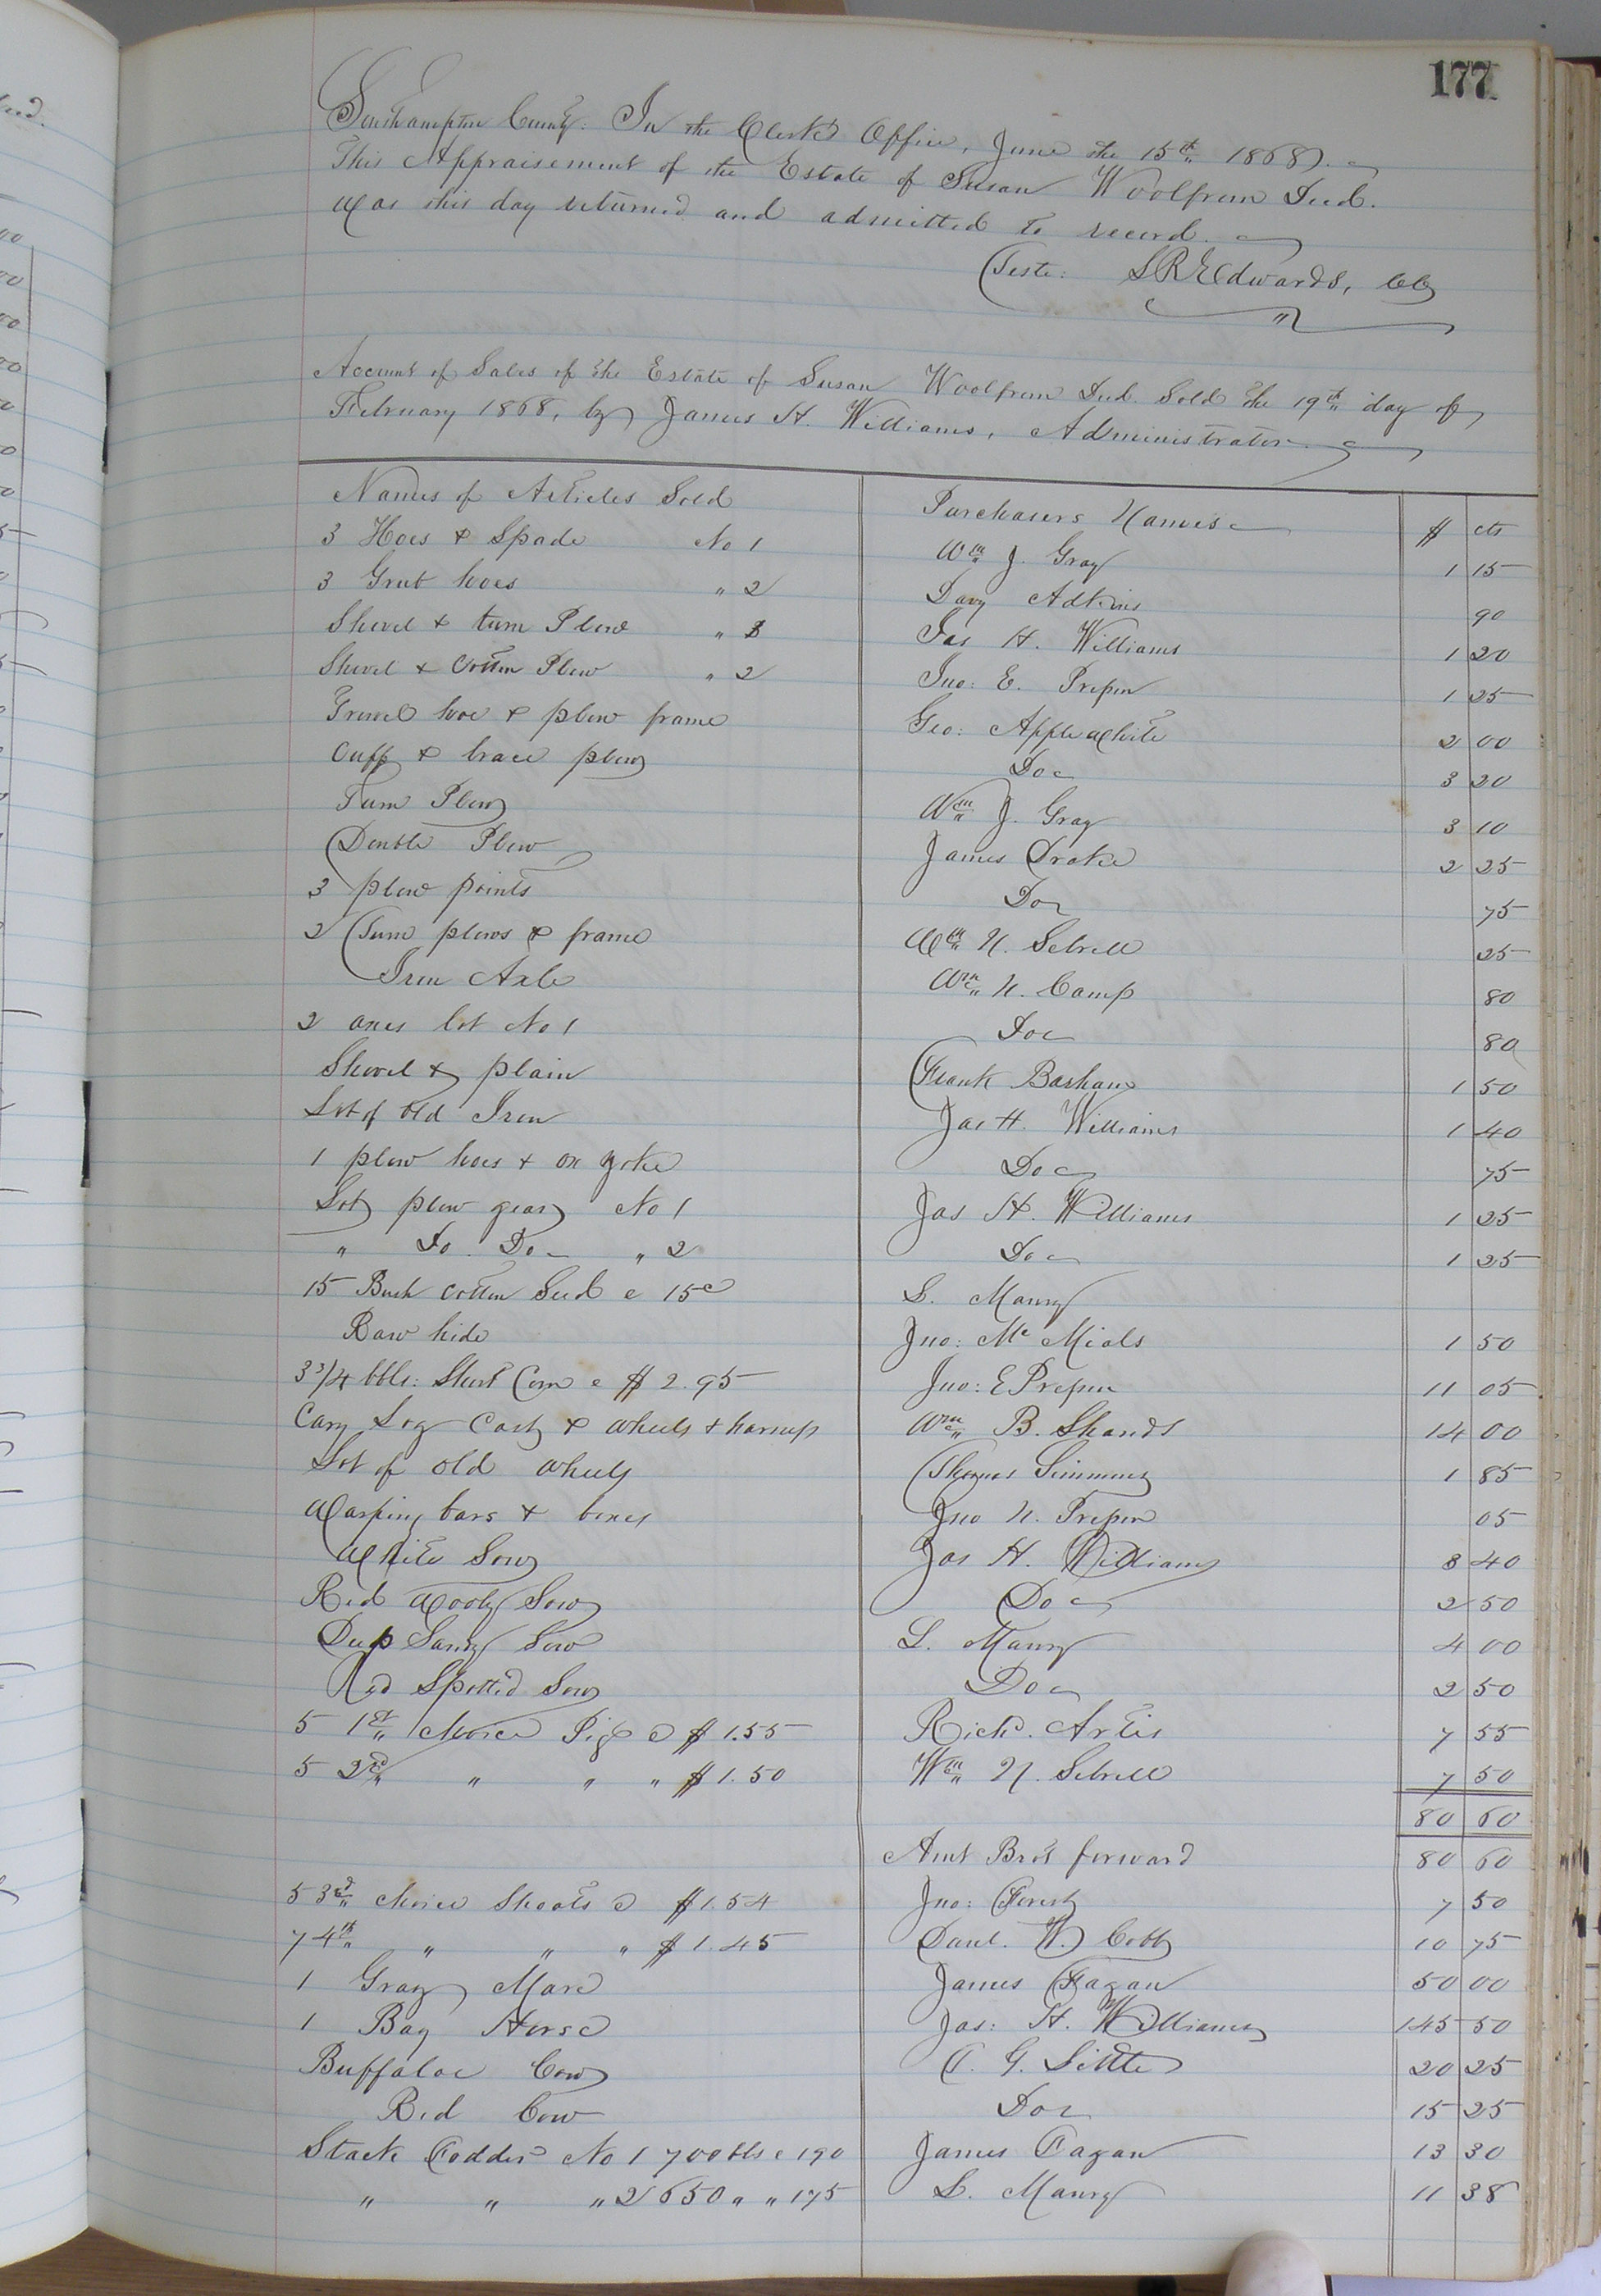 177
Southampton County: In the Clerk's Office, June the 15th 1868.
This Appraisement of the Estate of Susan Woolfrem Decd.
Was this day returned and admitted to record.
Teste: L R Edwards, CC
Account of Sales of the Estate of Susan Woolfrem Decd. Sold the 19th day of
February 1868, by James H. Williams, Administrator.
Names of Articles Sold Purchasers Names $ cts
3 Hoes & Spade No 1 Wm J. Gray 1 15
3 Grub hoes " 2 Davy Adkins 90
Shovel & turn Plow " Jas H. Williams 1 20
Shovel & Cotton Plow " 2 Jno: E. 1 25
hoe & plow frame Geo: Applewhite 2 00
Cuff & brace plow Do 3 20
Turn Plow Wm J. Gray 3 10
Double Plow James Drake 2 25
3 plow points Do 75
2 Turn plows & frame Wm N. Sebrell 25
Iron Axle Wm N. Camp 80
2 axes lot No 1 Do 80
Shovel & plain Frank Barham 1 50
Lot of old Iron Jas H. Williams 1 40
1 plow hoes & ox yoke Do 75
Lot plow gear No 1 Jas H. Williams 1 25
" Do. Do " 2 Do 1 25
15 Bush Cotton Seed @ 15c L. Maury
Raw hide Jno: Mc Mials 1 50
3 3/4 bbls: Short Corn @ $ 2.95 Jno: E 11 05
Cary Log Cart & wheels & harness Wm B. Shands 14 00
Lot of old wheels Thomas Simmons 1 85
Warping bars & boxes Jno N. 05
White Sow Jas H. Williams 8 40
Red Wooly Sow Do 2 50
Deep Sow L. Maury 4 00
Red Spotted Sow Do 2 50
5 1st Choice Pigs @ $ 1.55 Richd. Artis 7 55
5 2nd " " " $ 1.50 Wm N. Sebrell 7 50
80 60
Amt Bro't forward 80 60
5 3rd choice Shoats @ $1.54 Jno: 7 50
7 4th " " " $ 1.45 Danl. W. Cobb 10 75
1 Gray Mare James Fagan 50 00
1 Bay Horse Jas: H. Williams 145 50
Buffaloe Cow G. Little 20 25
Red Cow Do 15 25
Stack Fodder No 1 700 lbs @ 190 James Fagan 13 30
" " " 2 650 " " 175 L. Maury 11 38